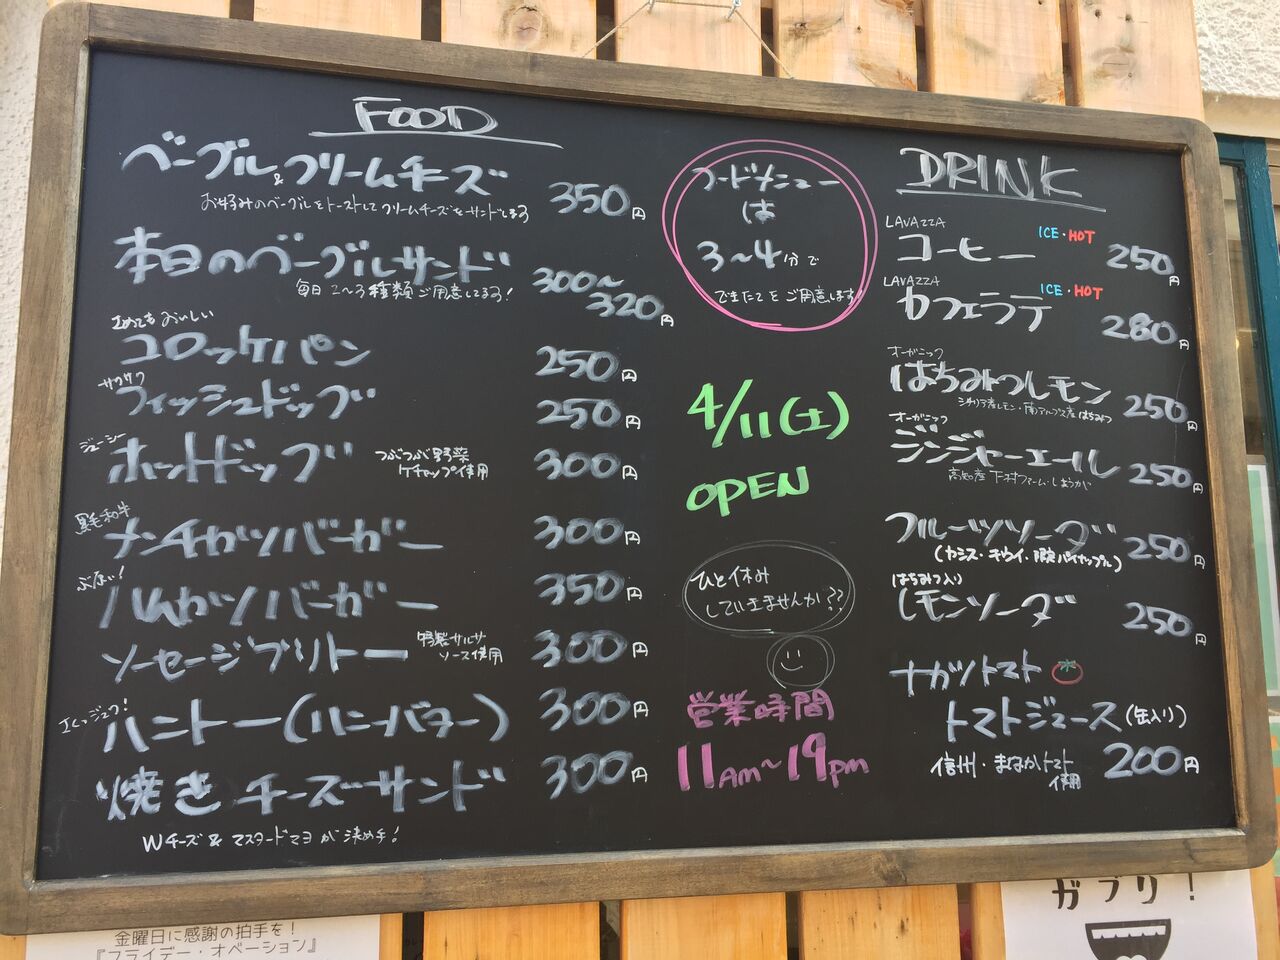 FOOD
ベーグル&クリームチーズ 350円
お好みのベーグルをトーストしてクリームチーズをサンドしてます
本日のベーグルサンド 300〜320円
毎日2〜3種類ご用意してます!
さめてもおいしい
コロッケパン 250円
サクサク
フィッシュドッグ 250円
ジューシー
ホットドッグ つぶつぶ野菜ケチャップ使用 300円
黒毛和牛
メンチカツバーガー 300円
ぶ厚い!
ハムカツバーガー 350円
ソーセージブリトー 特製サルサソース使用 300円
さくっジュワ!
ハニトー(ハニーバター) 300円
焼きチーズサンド 300円
Wチーズ&マスタードマヨが決め手!
フードメニュー
は
3〜4分で
できたてをご用意します!
4/11(土)
OPEN
ひと休み
していきませんか??
営業時間
11AM〜19PM
DRINK
LAVAZZA
コーヒー ICE・HOT 250円
LAVAZZA
カフェラテ ICE・HOT 280円
オーガニック
はちみつレモン 250円
シチリア産レモン・南アルプス産はちみつ
オーガニック
ジンジャーエール 250円
高知産 下村ファームしょうが
フルーツソーダ 250円
(カシス・キウイ・限定パイナップル)
はちみつ入り
レモンソーダ 250円
ナガノトマト
トマトジュース(缶入り)
信州・まなかトマト使用 200円
金曜日に感謝の拍手を!
『フライデー・オベーション』
ガブリ!